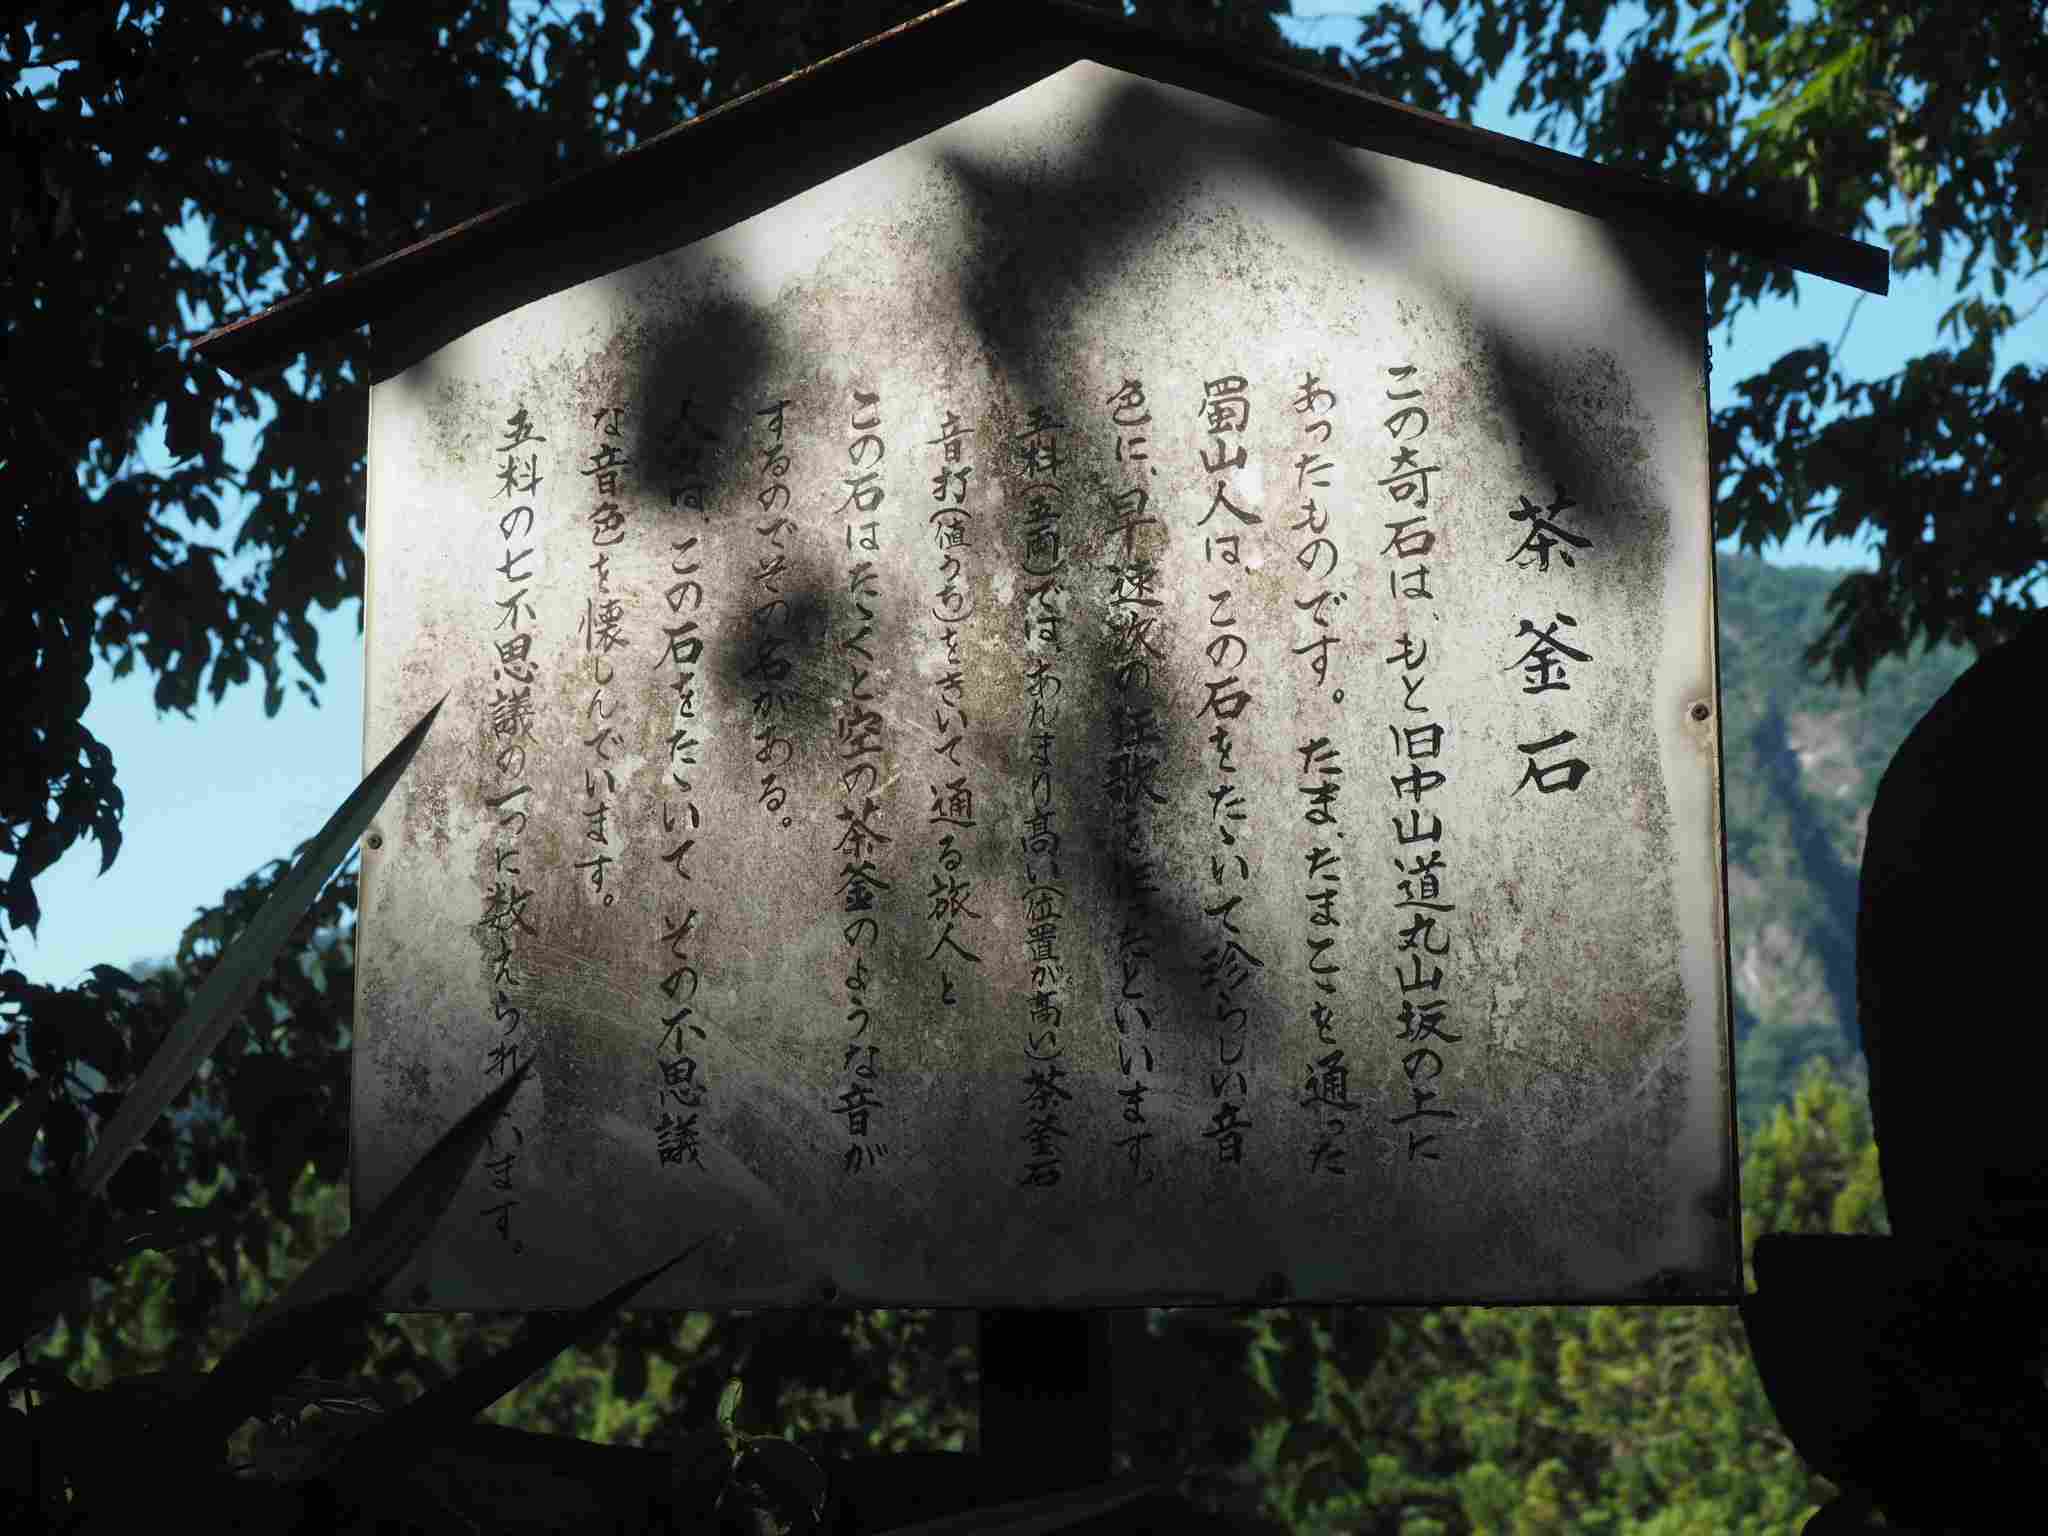 茶釜石
この奇石は、もと旧中山道丸山坂の上に
あったものです。たま、たまここを通った
蜀山人は、この石をたゝいて珍らしい音
色に、早速次の狂歌を作ったといいます。
五料(五両)では、あんまり高い(位置が高い)茶釜石
音打(値うち)をきいて通る旅人と
この石はたゝくと空の茶釜のような音が
するのでその名がある。
人々は、この石をたゝいて その不思議
な音色を懐しんでいます。
五料の七不思議の一つに数えられています。